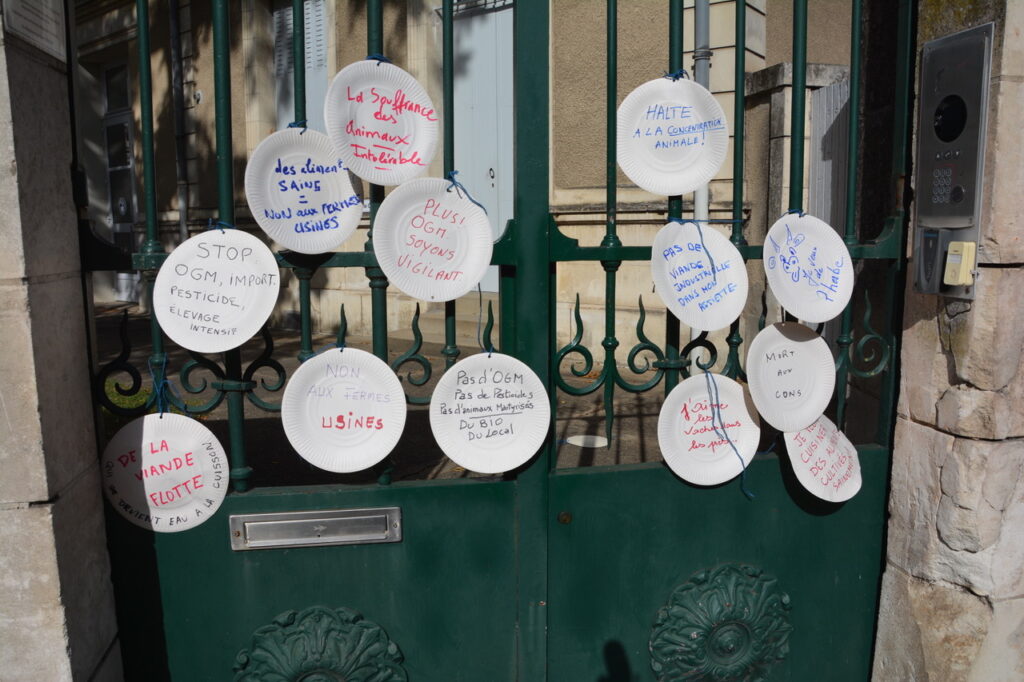 La Souffrance
des
Animaux
Intolérable
des aliment
SAINS
=
NON aux FERMES
USINES
PLUS!
OGM
SOYONS
VIGILANT.
STOP
OGM, IMPORT.
PESTICIDE,
ÉLEVAGE
INTENSIF
NON
AUX FERMES
USINES
Pas d'OGM
Pas de Pesticides
Pas d'animaux Martyrisés
Du BIO
Du Local
DE LA
VIANDE
FLOTTE
QUI DEVIENT EAU A LA CUISSON
HALTE
A LA CONCENTRATION
ANIMALE!
PAS DE
VIANDE
INDUSTRIELLE
DANS MON
ASSIETTE
MORT
AUX
CONS
J'aime
les
vaches dans
les prés...
CUISINER
DES
CULTIVÉS
SAINEMENT